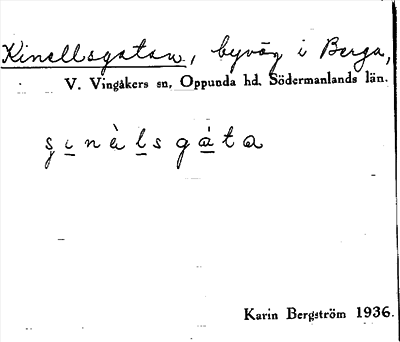 Kinellsgatan, byväg i Berga,
V. Vingåkers sn, Oppunda hd. Södermanlands län.
ʂ i n è l s g á t a
Karin Bergström 1936.